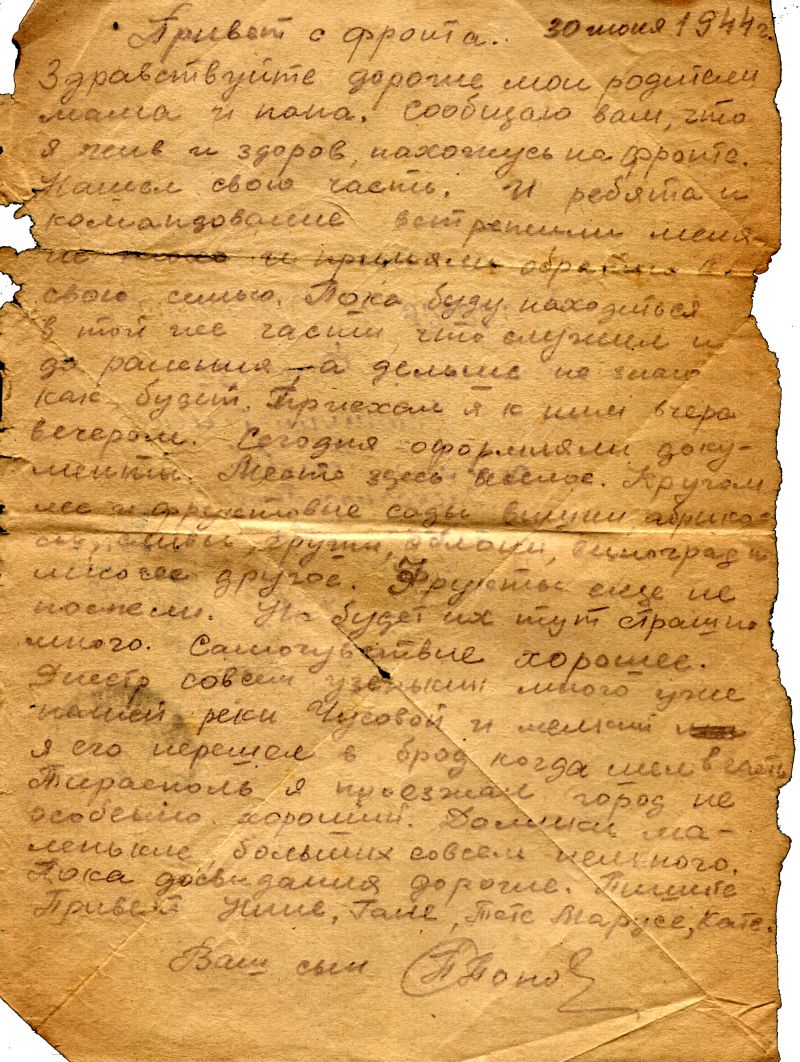 Привет с фронта. 30 июня 1944 г.
Здравствуйте дорогие мои родители
мама и папа. Сообщаю вам, что
я жив и здоров, нахожусь на фронте.
Нашел свою часть. И ребята и
командование встретили меня
и приняли обратно в
свою семью. Пока буду находиться
в той же части, что служил и
до ранения, а дальше не знаю
как будет. Приехал я к ним вчера
вечером. Сегодня оформляли доку-
менты. Место здесь веселое. Кругом
лес и фруктовые сады вишни, абрико-
сы, сливы, груши, яблоки, виноград и
многое другое. Фрукты еще не
поспели. Но будет их тут страшно
много. Самочувствие хорошее.
Днестр совсем узенький много уже
нашей реки Чусовой и мелкий
я его перешел в брод когда шел в часть
Тирасполь я проезжал город не
особенно хороший. Домики ма-
ленькие, больших совсем немного.
Пока досвидания дорогие. Пишите
Привет Нине, Гале, тете Марусе, Кате.
Ваш сын ППопов